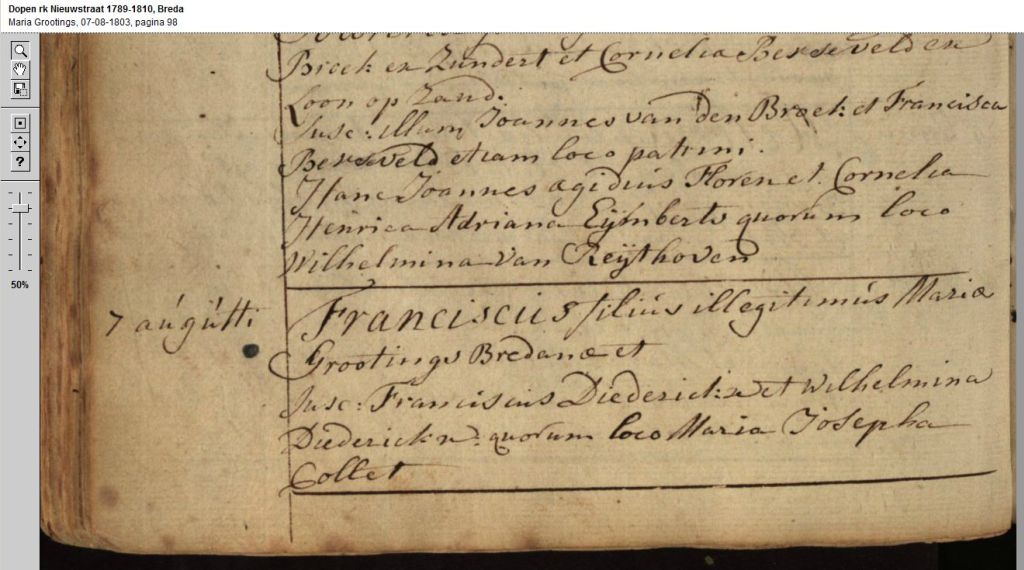 Dopen rk Nieuwstraat 1789-1810, Breda
Maria Grootings, 07-08-1803, pagina 98
Broek ex Zundert et Cornelia Berseveld ex
Loon op Zand.
Susc: illam Joannes van den Broek et Francisca
Berseveld etiam loco patrini.
Hanc Joannes ægidius Floren et Cornelia
Henrica Adriana Eijmberts quorum loco
Wilhelmina van Reijthoven
7 augusti
Franciscus filius illegitimus Mariæ
Grootings Bredanæ et
Susc: Franciscus Diederickx et Wilhelmina
Diederickx quorum loco Maria Josepha
Collet
?
50%